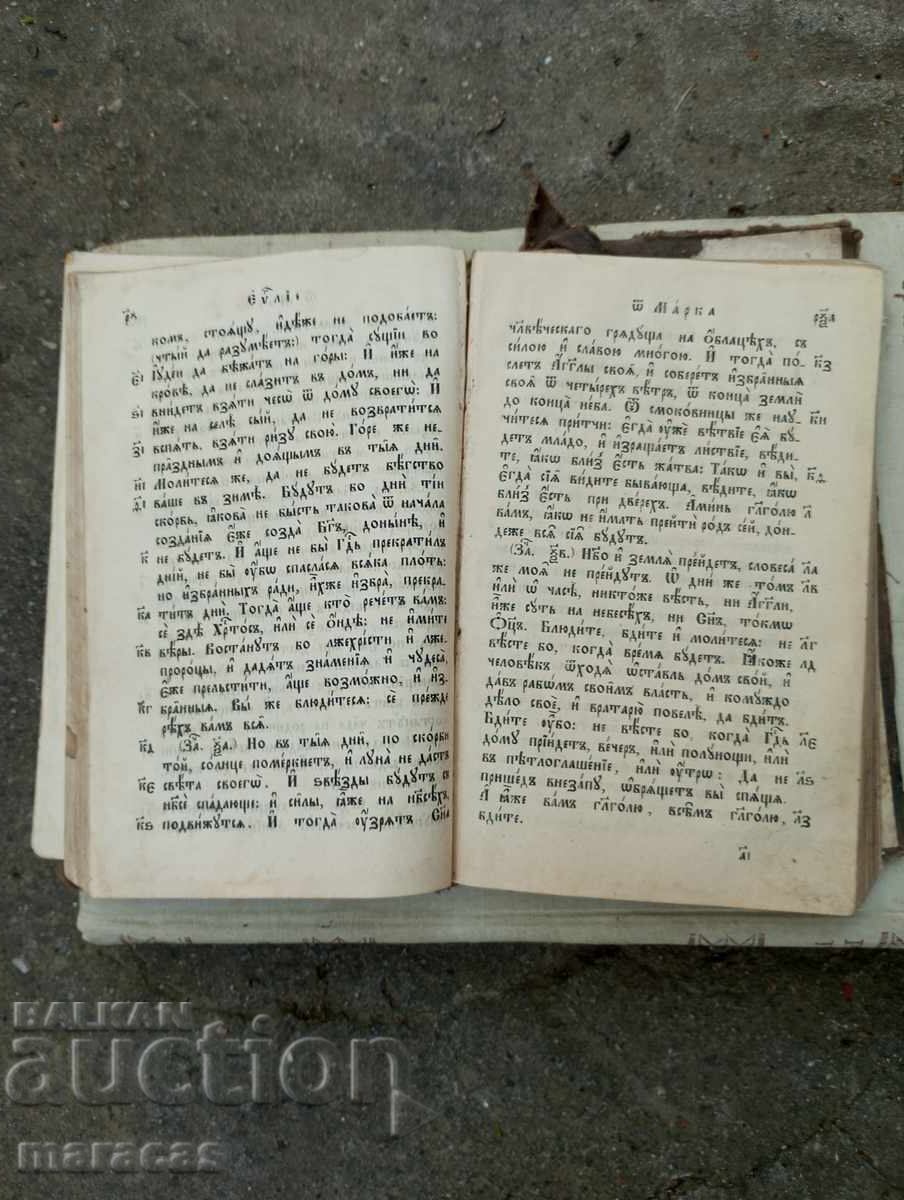 Єѵ҃лїе
рх
комъ, стоѧщꙋ, и҆дѣже не подобаетъ:
(чтый да разꙋмѣетъ:) тогда сꙋщїи во
єі І҆ꙋдеи да бѣжатъ на горы: И҆ и҆же на
кровѣ, да не слазитъ въ домъ, ни да
ѕі внидетъ взѧти чесѡ ѿ домꙋ своегѡ: И҆
и҆же на селѣ сый, да не возвратитсѧ
зі вспѧть, взѧти ризꙋ свою. Горе же не-
празднымъ и҆ доѧщымъ въ тыѧ дни.
иі Молитесѧ же, да не бꙋдетъ бѣгство
ѳі ваше въ зимѣ. Бꙋдꙋтъ бо дни тїи
скорбь, ꙗ҆кова не бысть такова ѿ начала
созданїѧ є҆же созда Бг҃ъ, донынѣ, и҆
к не бꙋдетъ. И҆ а҆ще не бы Гд҇ь прекратилъ
дний, не бы ᲂу҆бѡ спасласѧ всѧка плоть:
но и҆збранныхъ ради, и҆хже и҆збра, прекра-
ка титъ дни. Тогда а҆ще кто речетъ вамъ:
се здѣ Хрⷭ҇тосъ, и҆ли се ѻ҆ндѣ: не и҆мите
кв вѣры. Востанꙋтъ бо лжехрїсти и҆ лже-
пророцы, и҆ дадѧтъ знаменїѧ и҆ чꙋдеса,
є҆же прельстити, а҆ще возможно, и҆ и҆з-
кг бранныѧ. Вы же блюдитесѧ: се прежде
рѣхъ вамъ всѧ.
кд (За҃.) Но въ тыѧ дни, по скорби
той, солнце померкнетъ, и҆ лꙋна не дастъ
кє свѣта своегѡ. И҆ ѕвѣзды бꙋдꙋтъ съ
нб҃се спадающи: и҆ силы, ꙗ҆же на нб҃сѣхъ,
кѕ подвижꙋтсѧ. И҆ тогда ᲂу҆зрѧтъ Сн҃а
ѿ Марка
рха
чл҃вѣческаго грѧдꙋща на ѻ҆блацѣхъ, съ
силою и҆ славою многою. И҆ тогда по- кз
слетъ а҆гг҃лы своѧ, и҆ соберетъ и҆збранныѧ
своѧ ѿ четырехъ вѣтръ, ѿ конца земли
до конца неба. Ѿ смоковницы же наꙋ- ки
читесѧ притчи: є҆гда ᲂу҆же вѣтвїе є҆ѧ бꙋ-
детъ младо, и҆ и҆зращаетъ листвїе, вѣди-
те, ꙗ҆кѡ близ є҆сть жатва: Такѡ и҆ вы, кѳ
є҆гда сїѧ видите бывающа, вѣдите, ꙗ҆кѡ
близ є҆сть при дверехъ. Аминь гл҃голю л
вамъ, ꙗ҆кѡ не и҆мать прейти родъ сей, дон-
деже всѧ сїѧ бꙋдꙋтъ.
(За҃.) Нбо и҆ землѧ прейдетъ, словеса ла
же моѧ не прейдꙋтъ. Ѡ҆ дни же томъ лв
и҆ли ѡ҆ часѣ, никтоже вѣсть, ни а҆гг҃ли,
и҆же сꙋть на небесѣхъ, ни Сн҃ъ, токмѡ
Ѻ҆ц҃ъ. Блюдите, бдите и҆ молитесѧ: не лг
вѣсте бо, когда времѧ бꙋдетъ. Ꙗ҆коже лд
человѣкъ ѿходѧ ѡ҆ставль домъ свой, и҆
давъ рабѡмъ своимъ власть, и҆ комꙋждо
дѣло свое, и҆ вратарю повелѣ, да бдитъ.
Бдите ᲂу҆бо: не вѣсте бо, когда Гд҇ь лє
домꙋ прїидетъ, вечеръ, и҆ли полꙋнощи, и҆ли
въ пѣтлоглашенїе, и҆ли ᲂу҆трѡ: Да не лѕ
пришедъ внезапꙋ, ѡ҆брѧщетъ вы спѧщѧ.
А҆ ꙗ҆же вамъ гл҃голю, всѣмъ гл҃голю, лз
бдите.
аі
BALKAN
auction
maracas